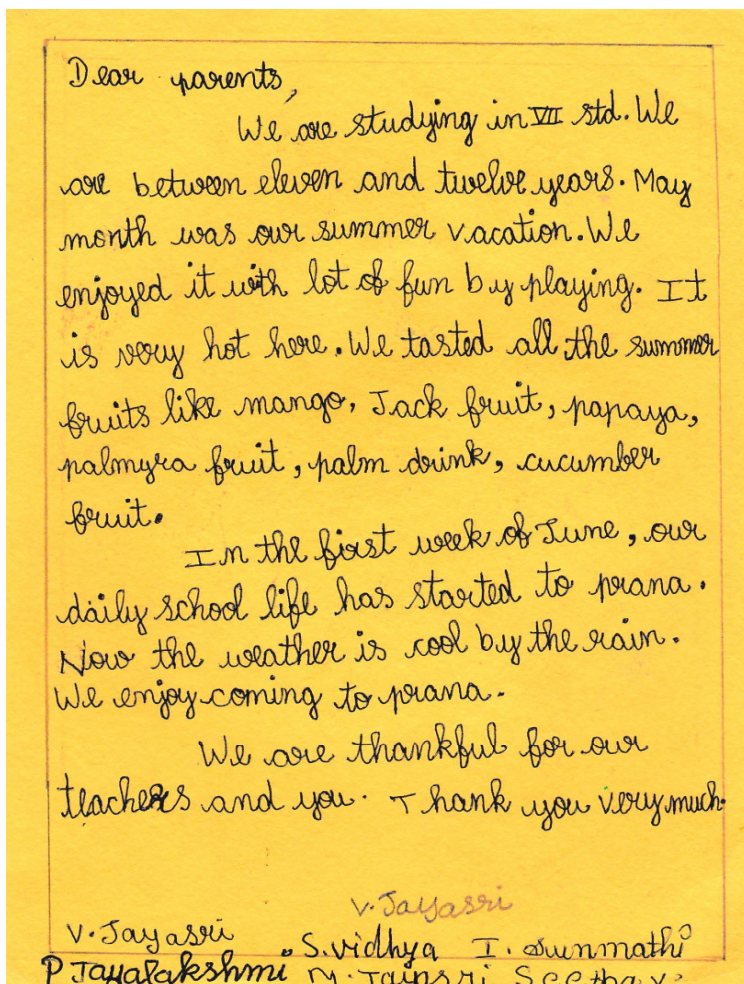 Dear parents,
We are studying in VII std. We
are between eleven and twelve years. May
month was our summer vacation. We
enjoyed it with lot of fun by playing. It
is very hot here. We tasted all the summer
fruits like mango, Jack fruit, papaya,
palmyra fruit, palm drink, cucumber
fruit.
In the first week of June, our
daily school life has started to prana.
Now the weather is cool by the rain.
We enjoy coming to prana.
We are thankful for our
teachers and you. Thank you very much.
V. Jayasri
V. Jayasri S. vidhya I. Sunmathi
P Jayalakshmi M. Jaipsri Seetha V